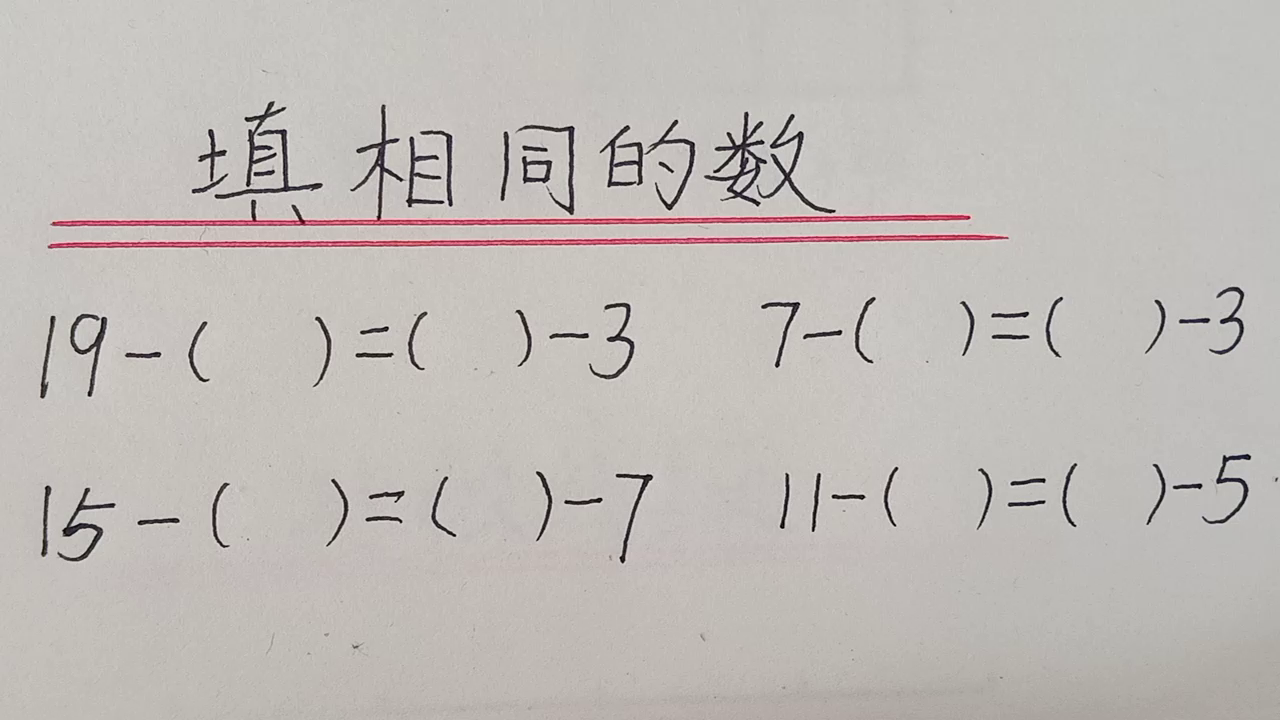 填相同的数
19-( )=( )-3 7-( )=( )-3
15-( )=( )-7 11-( )=( )-5